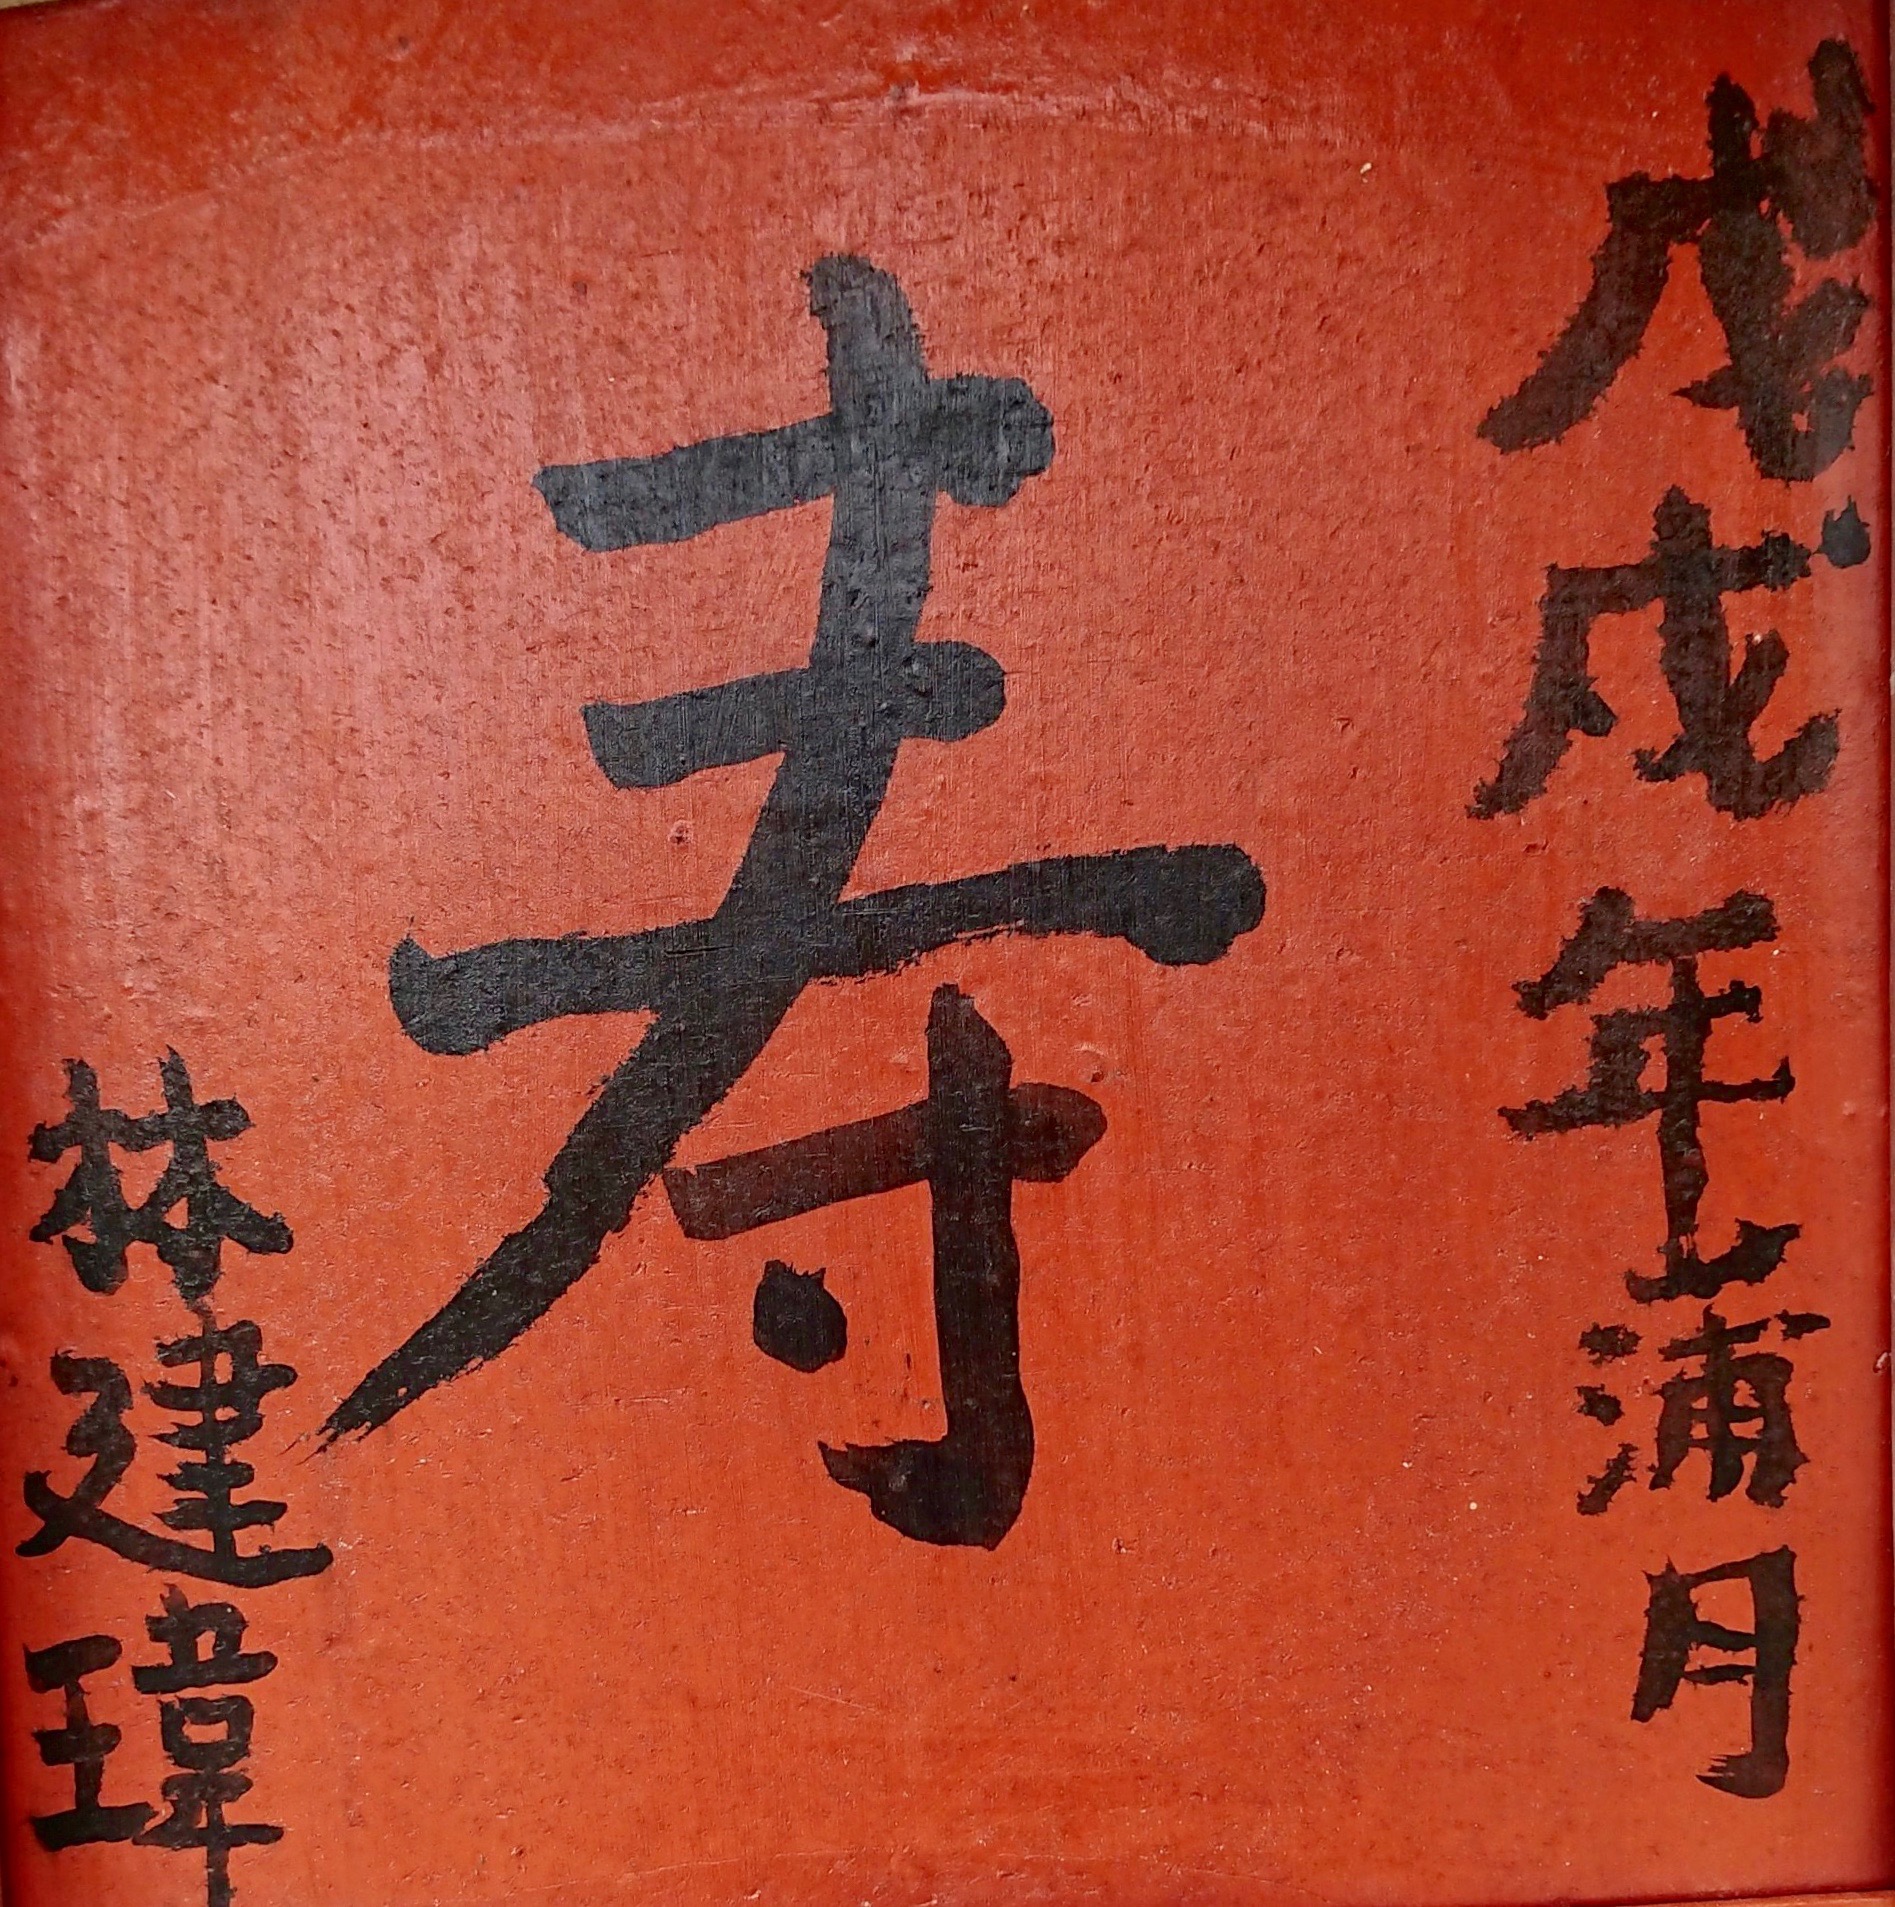 戊戌年蒲月
寿
林建瑋